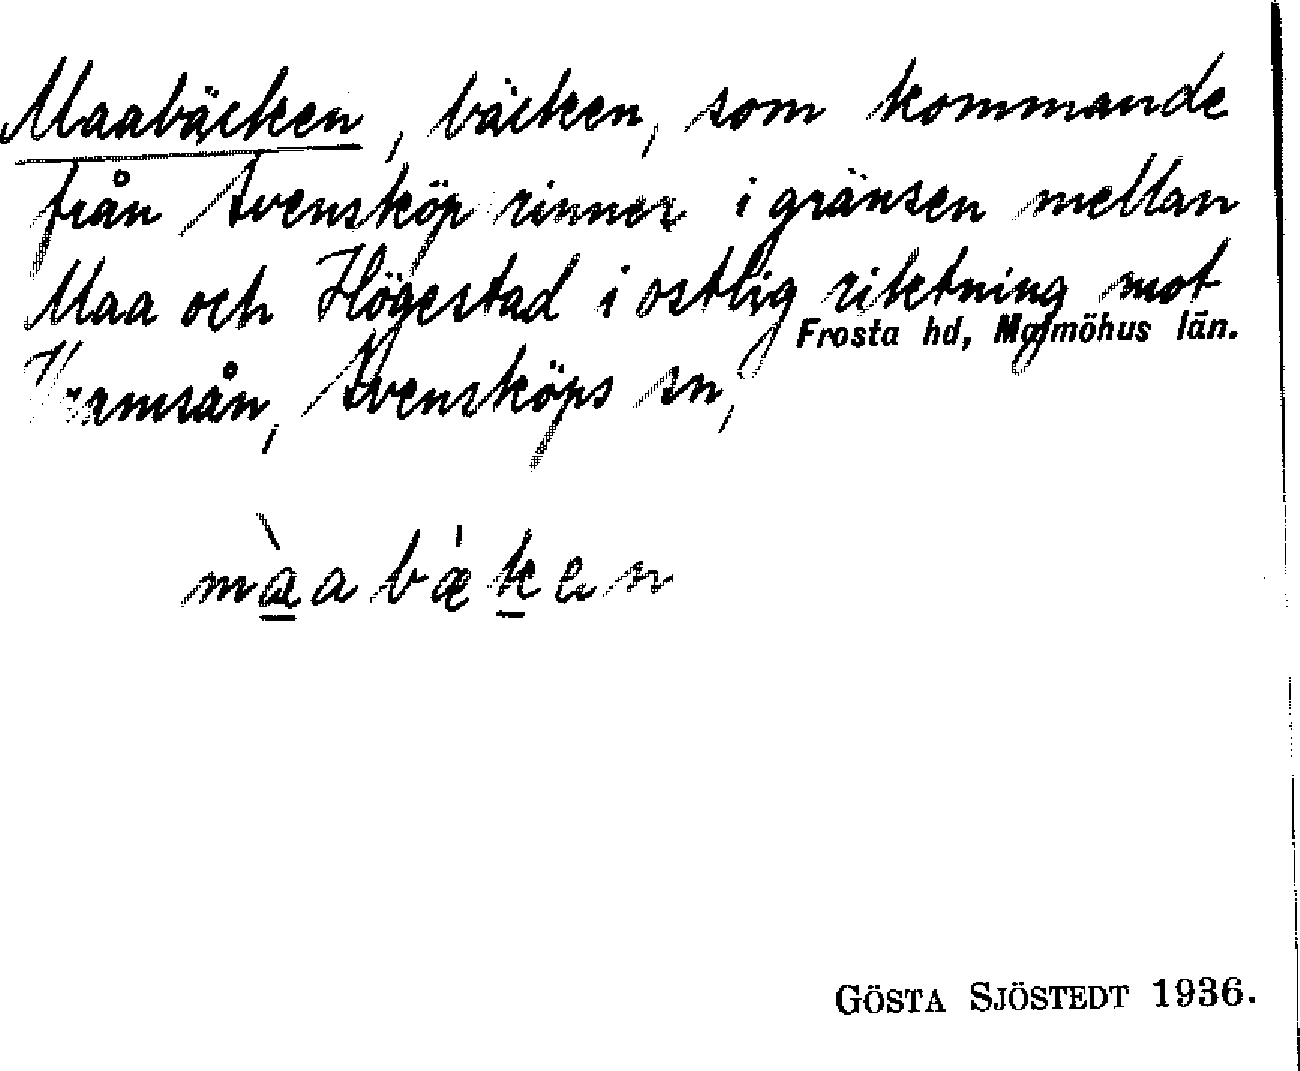 Maabäcken, bäcken, som kommande
från Svensköp rinner i gränsen mellan
Maa och Högestad i ostlig riktning mot
Frosta hd, Malmöhus län.
Svensköps sn,
màabæken
GÖSTA SJÖSTEDT 1936.